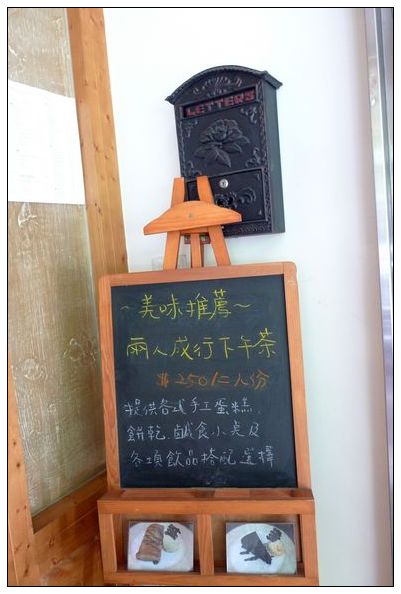 LETTERS
~美味推薦~
兩人成行下午茶
$250/二人份
提供各式手工蛋糕.
餅乾.鹹食小點及
各項飲品搭配選擇